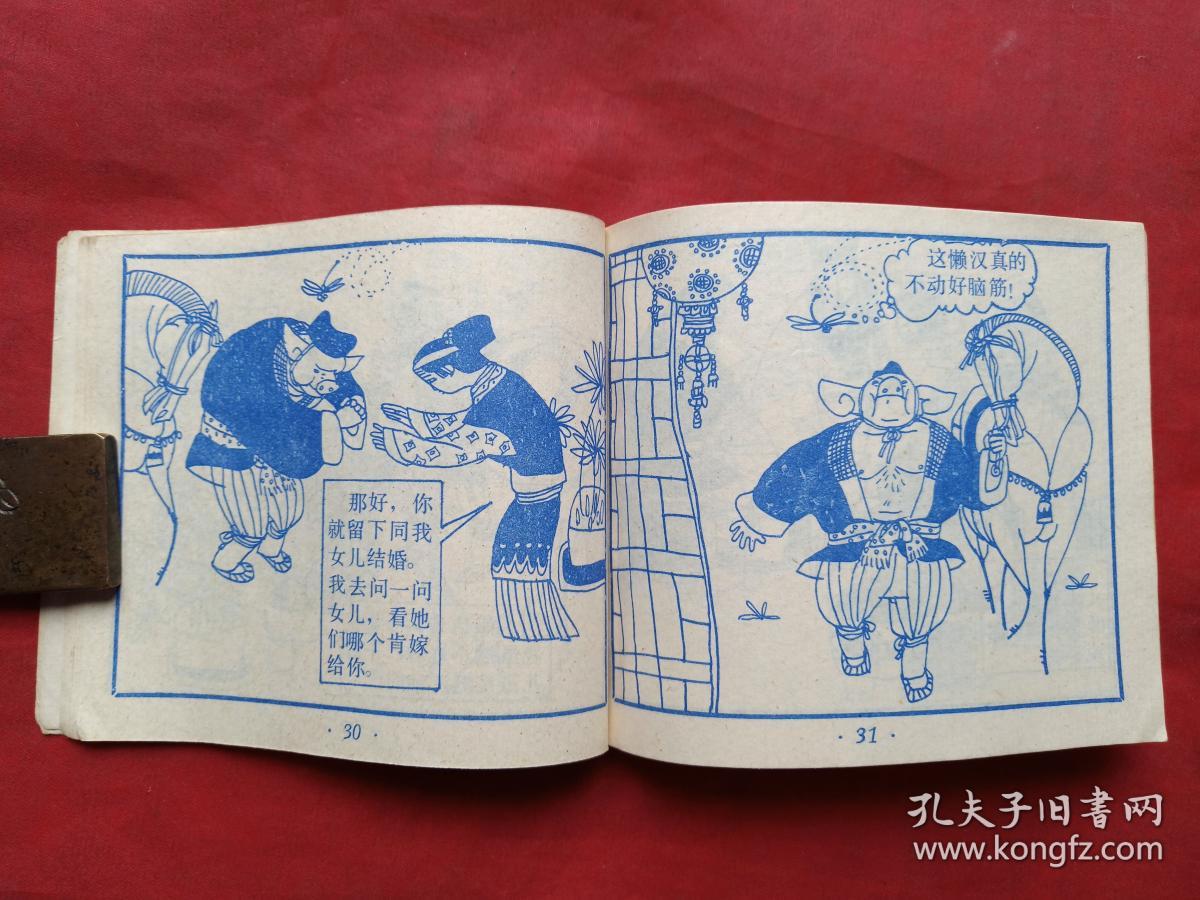 那好，你
就留下同我
女儿结婚。
我去问一问
女儿，看她
们哪个肯嫁
给你。
·30·
这懒汉真的
不动好脑筋！
·31·
孔夫子旧书网
www.kongfz.com